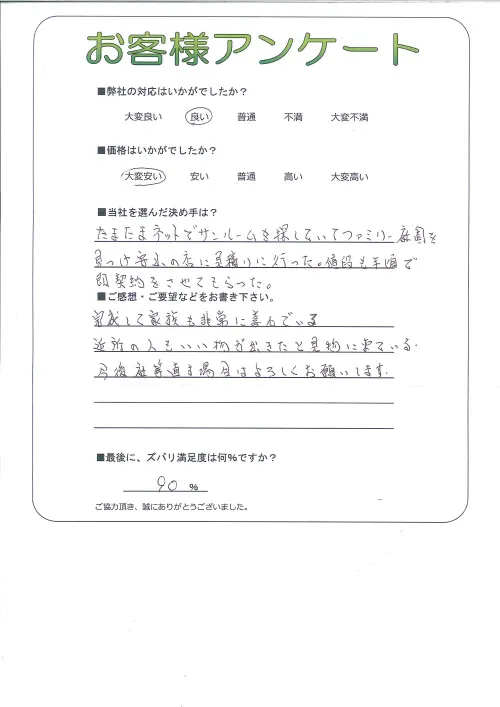 お客様アンケート
■弊社の対応はいかがでしたか？
大変良い 良い 普通 不満 大変不満
■価格はいかがでしたか？
大変安い 安い 普通 高い 大変高い
■当社を選んだ決め手は？
たまたまネットでサンルームを探していてファミリー庭園を
見つけ の店に見積りに行った。値段も手頃で
即契約をさせてもらった。
■ご感想・ご要望などをお書き下さい。
完成して家族も非常に喜んでいる
近所の人もいい物が出きたと見物に来ている.
今後庭等直す場合はよろしくお願いします.
■最後に、ズバリ満足度は何％ですか？
90 ％
ご協力頂き、誠にありがとうございました。